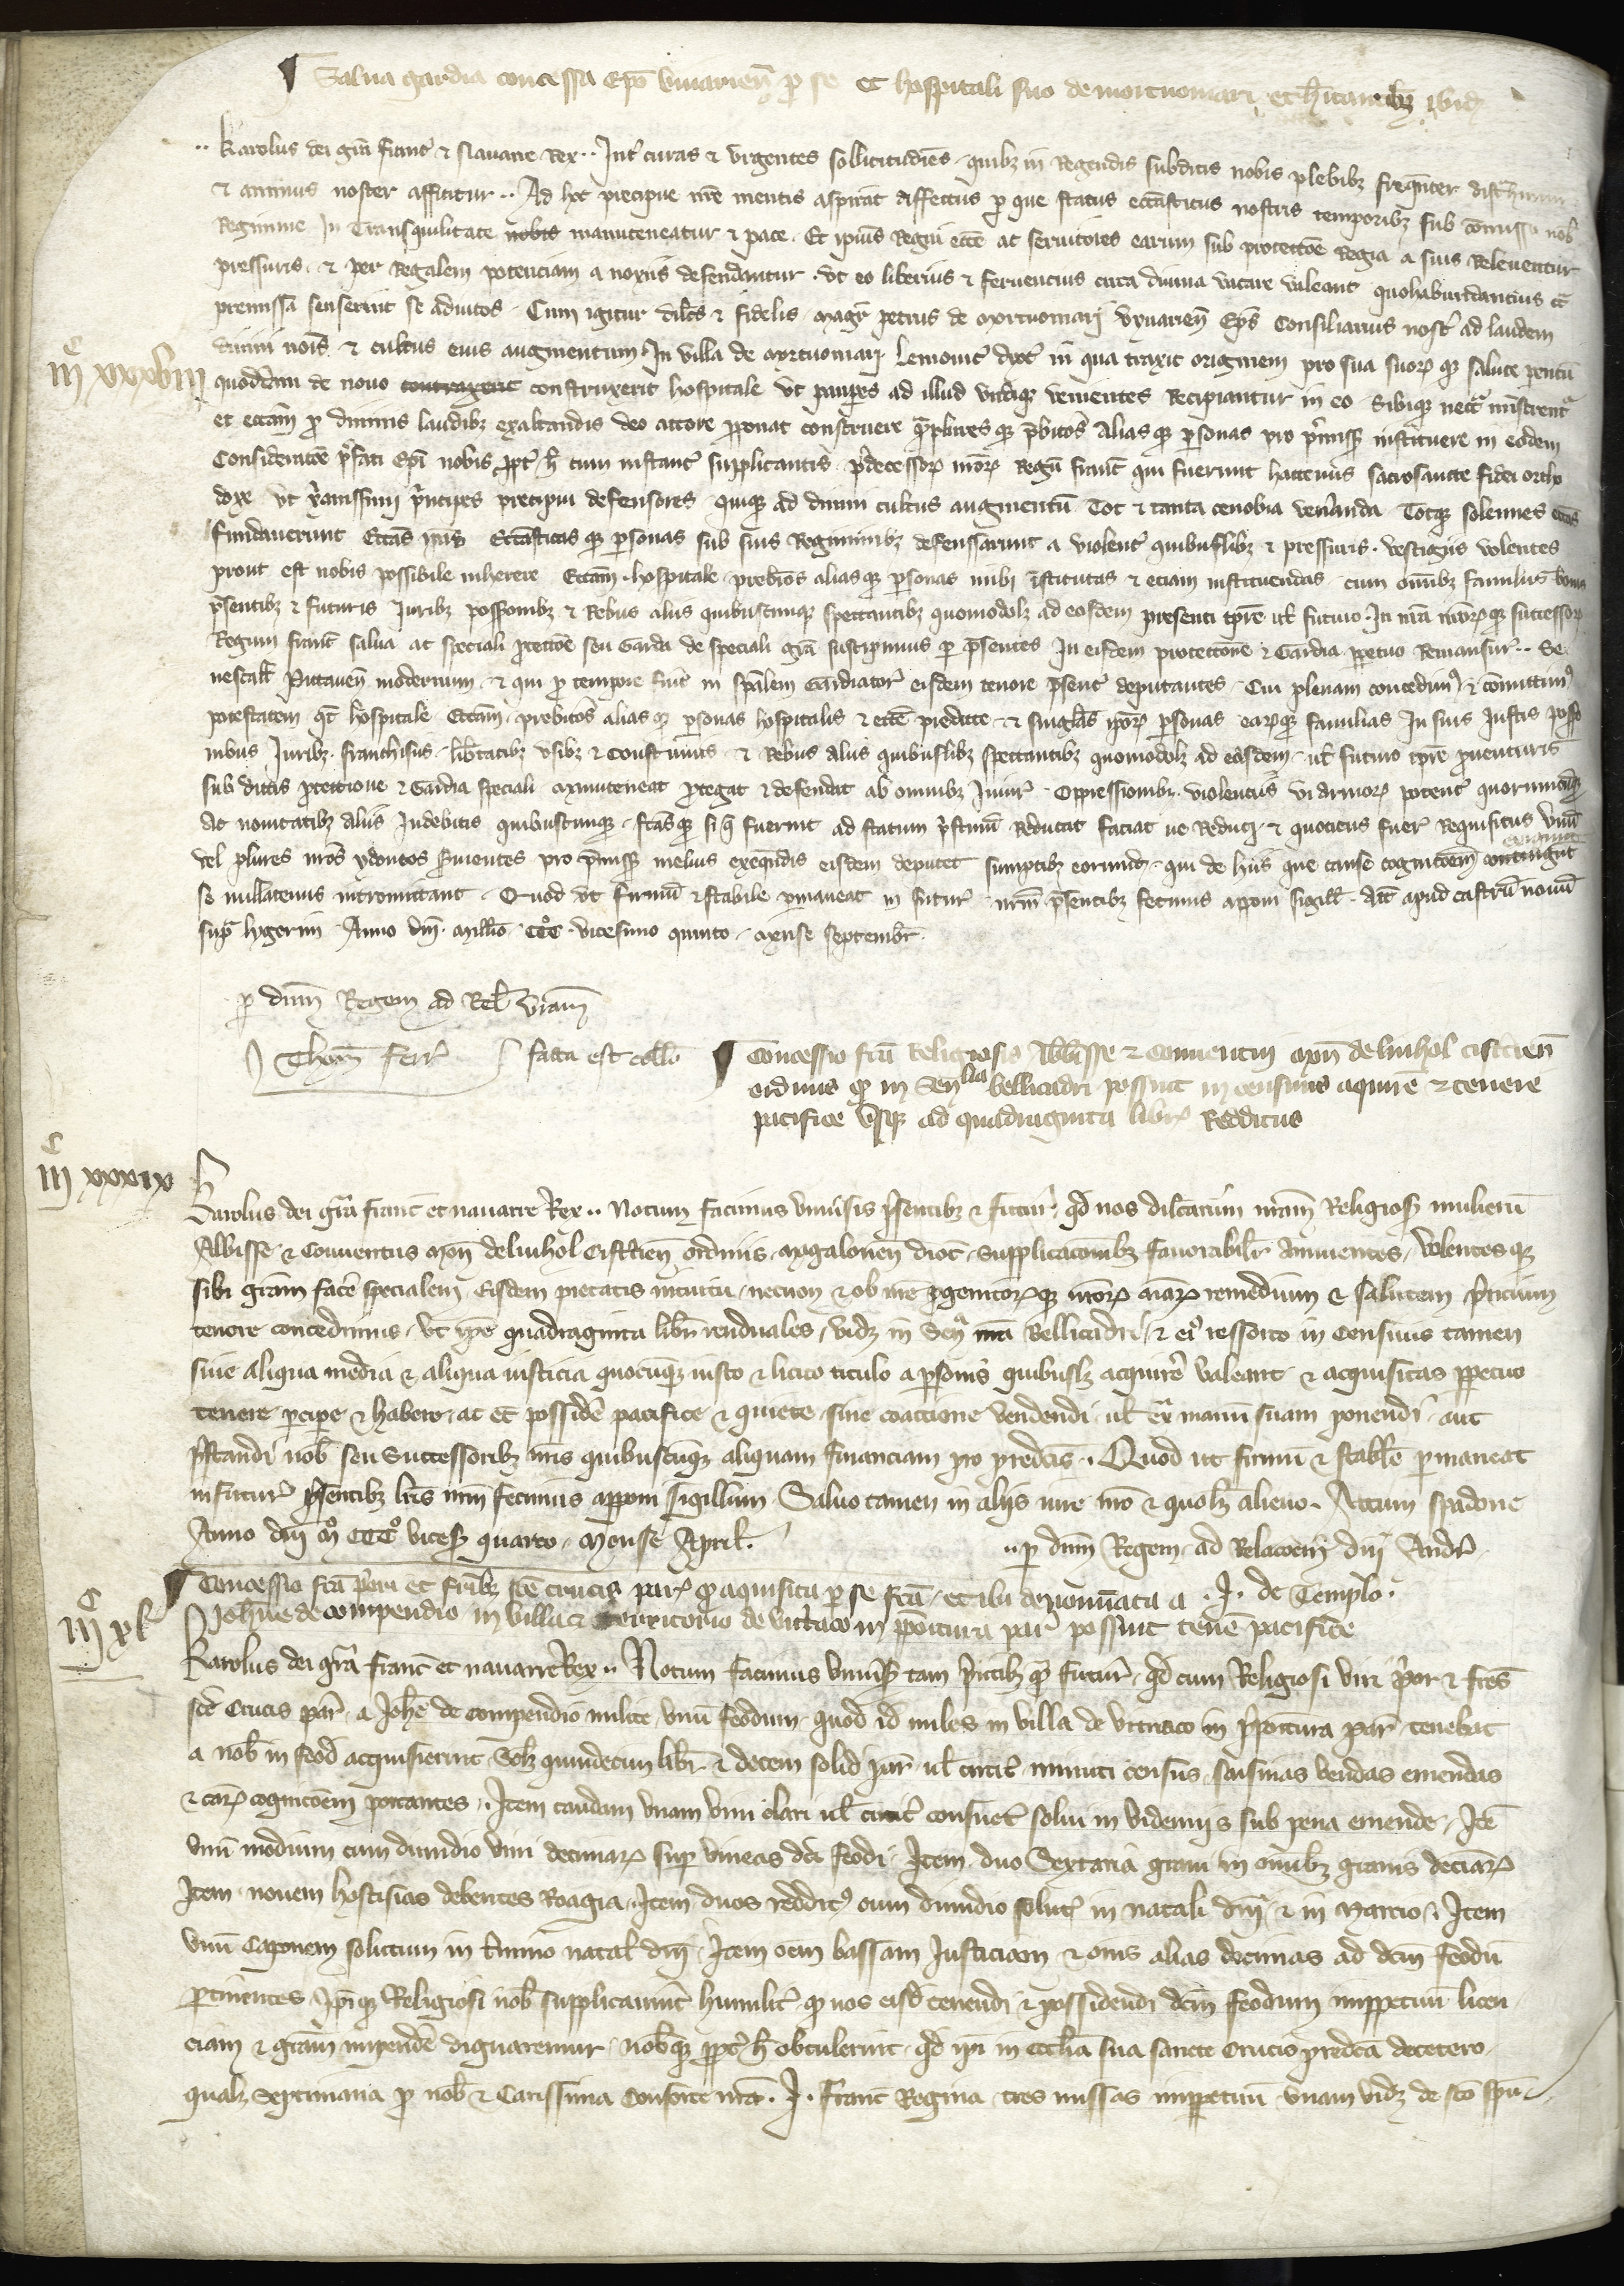 Salua gardia concessa Epo viuarien p se et hospitali suo de mortuomari et hitantibz ibid
Karolus dei gra franc et Nauarre Rex .. Int curas et vrgentes sollicitudines quibz in Regendis subditis nobis plebibz frequenter distrahimur
et animus noster afficitur .. Ad hec precipue nre mentis aspirat affectus p que status ecclasticus nostris temporibz sub comisso nob
Regimine In Transquilitate nobis manuteneatur et pace. Et ipius Regni eccle ac seruitores earum sub protectoe Regia a suis Releuentur
pressuris. et per Regalem potenciam a noxiis defendantur. vt eo liberius et feruencius circa diuina vacare valeant quohabundancius
premissa senserint se adiutos. Cum igitur dilcus et fidelis magr petrus de mortuomari viuarien Eps Consiliarius nostr ad laudem
diuini nois et cultus eius augmentum In villa de mortuomari Lemouic dyoc in qua traxit originem pro sua suorq salute
quoddam de nouo contraxerit construxerit hospitale vt pauperes ad illud vndiqz venientes Recipiantur in eo Sibique necia ministrent
et ecclam p diuinis laudibz exaltandis deo actore pponat construere qplures qz pbitos alias qz psonas pro pmiss instituere in eodem
Consideracoe pfati Epi nobis ppt h cum instanc supplicantis pdecessor nror Regu franc qui fuerunt hactenus sacrosancte fidei ortho
doxe vt xanissimi pncipes precipui defensores quique ad diuini cultus augmentu Tot et tanta cenobia veneranda Totqz solennes eccias
fundauerunt Eccias ecclasticas qz personas sub suis Regiminibz defenssarunt a violenc quibuslibz et pressuris. vestigiis volentes
prout est nobis possibile inherere Ecclam hospitale prebitos aliasqz personas inibi istitutas et eciam instituendas cum omibz familiis bonis
psentibz et futuris Juribz possessionibz et Rebus aliis quibuscunqz spectantibz quomodolz ad eosdem presenti tpre ul futuro. In nra nrorqz successor
Regum franc salua ac speciali ptectoe seu Garda de speciali gra suscipimus p psentes In eisdem protectione et Gardia ppetuo Remansur .. Se
nescall Pictauen modernum et qui p tempore fuit in spalem Gardiator eisdem tenore psent deputantes. Cui plenam concedim et comittim
potestatem qt hospitale Ecclam prebitos alias qz psonas hospitalis et eccle predicte et singlas ipor personas earqz familias In suis Justis posse
nibus Juribz franchisiis libtatibz vsibz et Constumis et Rebus aliis quibuslibz spectantibz quomodolz ad eosdem ul futuro tpre puenturis
sub dictis ptectione et Gardia speciali manuteneat ptegat et defendat ab omnibz Iniur Oppressionibz violenciis vi armor potenc quorumcunqz
ac nouitatibz aliis Indebitis quibuscunqz ftasqz si q fuerint ad statum pstinu Reducat faciat ue Reduci et quociens fuer Requisitus vnu
vel plures nros ydoneos suientes pro pmiss melius exequdis eisdem deputet sumptibz eorund qui de hiis que cause cognicoem contingut exigunt
se nullatenus intromittant. Quod vt firmu et stabile pmaneat in futur nrm psentibz fecimus apponi sigill. Act apud castru nouu
supr lygerim Anno dni millio CCC vicesimo quinto mense septembr.
p dnm Regem ad Rel vram
Thom Ferr facta est collo
Concessio fca Religiosis Abbisse et Conuentui mon de vinhol cistcien
ordinis q in Senllia bellicadri possint in censiuis aquire et tenere
pacifice vsqz ad quadraginta libr Redditus
iiic xxxviii
iiic xxxix
Karolus dei gra franc et nauarre Rex .. Notum facimus vniusis psentibz et futur qd nos dilcarum nram Religios mulieru
Abbisse et Conuentus mon de vinhol Cistcien ordinis magalonen dioc supplicacoibz fauorabilr annuentes volentesqz
sibi gram facere specialem Eisdem pietatis intuitu necnon et ob nre pgenitorqz nror aiar remedium et salutem
tenore concedimus vt ipse quadraginta libr renduales vidz in Sen nra Bellicadri et ei ressorto in Censiuis tamen
siue aliqua media et aliqua iusticia quocumqz iusto et licito titulo a psonis quibuslz acquire valeant et acquisitas ppetuo
tenere pcipe et habere ac et possidere pacifice et quiete sine coactione vendendi ul ex manu suam ponendi aut
pstandi nob seu Successoribz nris quibuscumqz aliquam financiam pro predcis. Quod ut firmu et stabile pmaneat
infutur psentibz lris nrm fecimus apponi sigillum Saluo tamen in aliis iure nro et quolz alieno. Actum spadone
Anno dni m CCC vices quarto Mense April.
.. p dnm Regem ad Relacoem dni Andr
Concessio fca priori et fribz sce crucis par q aquisita p se fca et ibi denominata a .J. de Templo.
Johanne de compendio in villa et territorio de vitriaco in ppoitura par possint tenere pacifice
iiic xl
Karolus dei gra franc et nauarre Rex .. Notum facimus vniuss tam psentibz q futur qd cum Religiosi viri pior et fres
sce Crucis par a Johe de compendio milite vnu feodum quod id miles in villa de vitriaco in ppoitura par tenebat
a nob in feod acquisierint Sclz quindecim libr et decem solid par ul circit minuti census saisinas vendas emendas
et ear cognicoem portantes. Item caudam vnam vini clari ul circit consuet solui in videmiis sub pena emende. Ite
vnu modium cum dimidio vini decimar sup vineas dci feodi. Item duo Sextaria grani in omibz granis deciar
Item nouem hostisias debentes Roagia. Item duos reddit cum dimidio solut in natali dni et in marcio. Item
vnu Caponem solutum in tmino natal dni Item oem bassam Justiciam et oms alias decimas ad dcm feodu
ptinentes Ipiqz Religiosi nob supplicauint humilit q nos eisd tenendi et possidendi dcm feodum imppetuu licen
ciam et gram impende dignaremur nobqz ppt h obtulerint qd ipi in Ecclia sua sancte Crucis predca decetero
qualz Septimana p nob et Carissima Consorte nra. J. Franc Regina tres missas imppetuu vnam vidz de sco spu